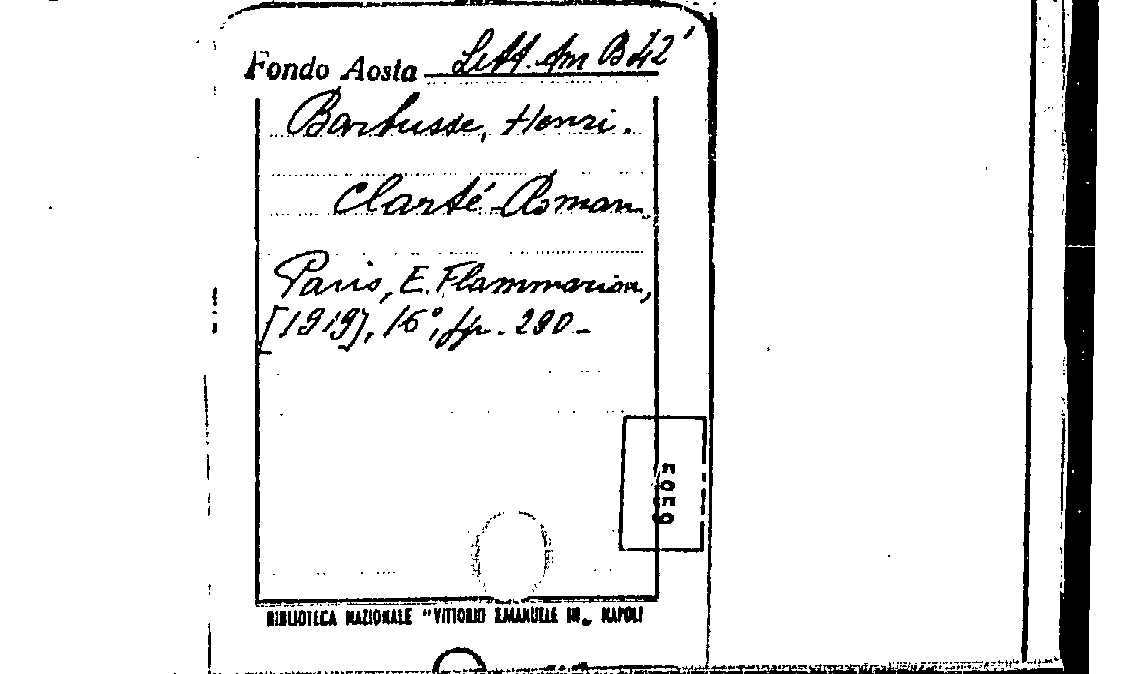 Fondo Aosta Lett. Am B 42
Barbusse, Henri.
Clarté. Roman.
Paris, E. Flammarion,
[1919], 16°, pp. 290 -
BIBLIOTECA NAZIONALE "VITTORIO EMANUELE III„ NAPOLI